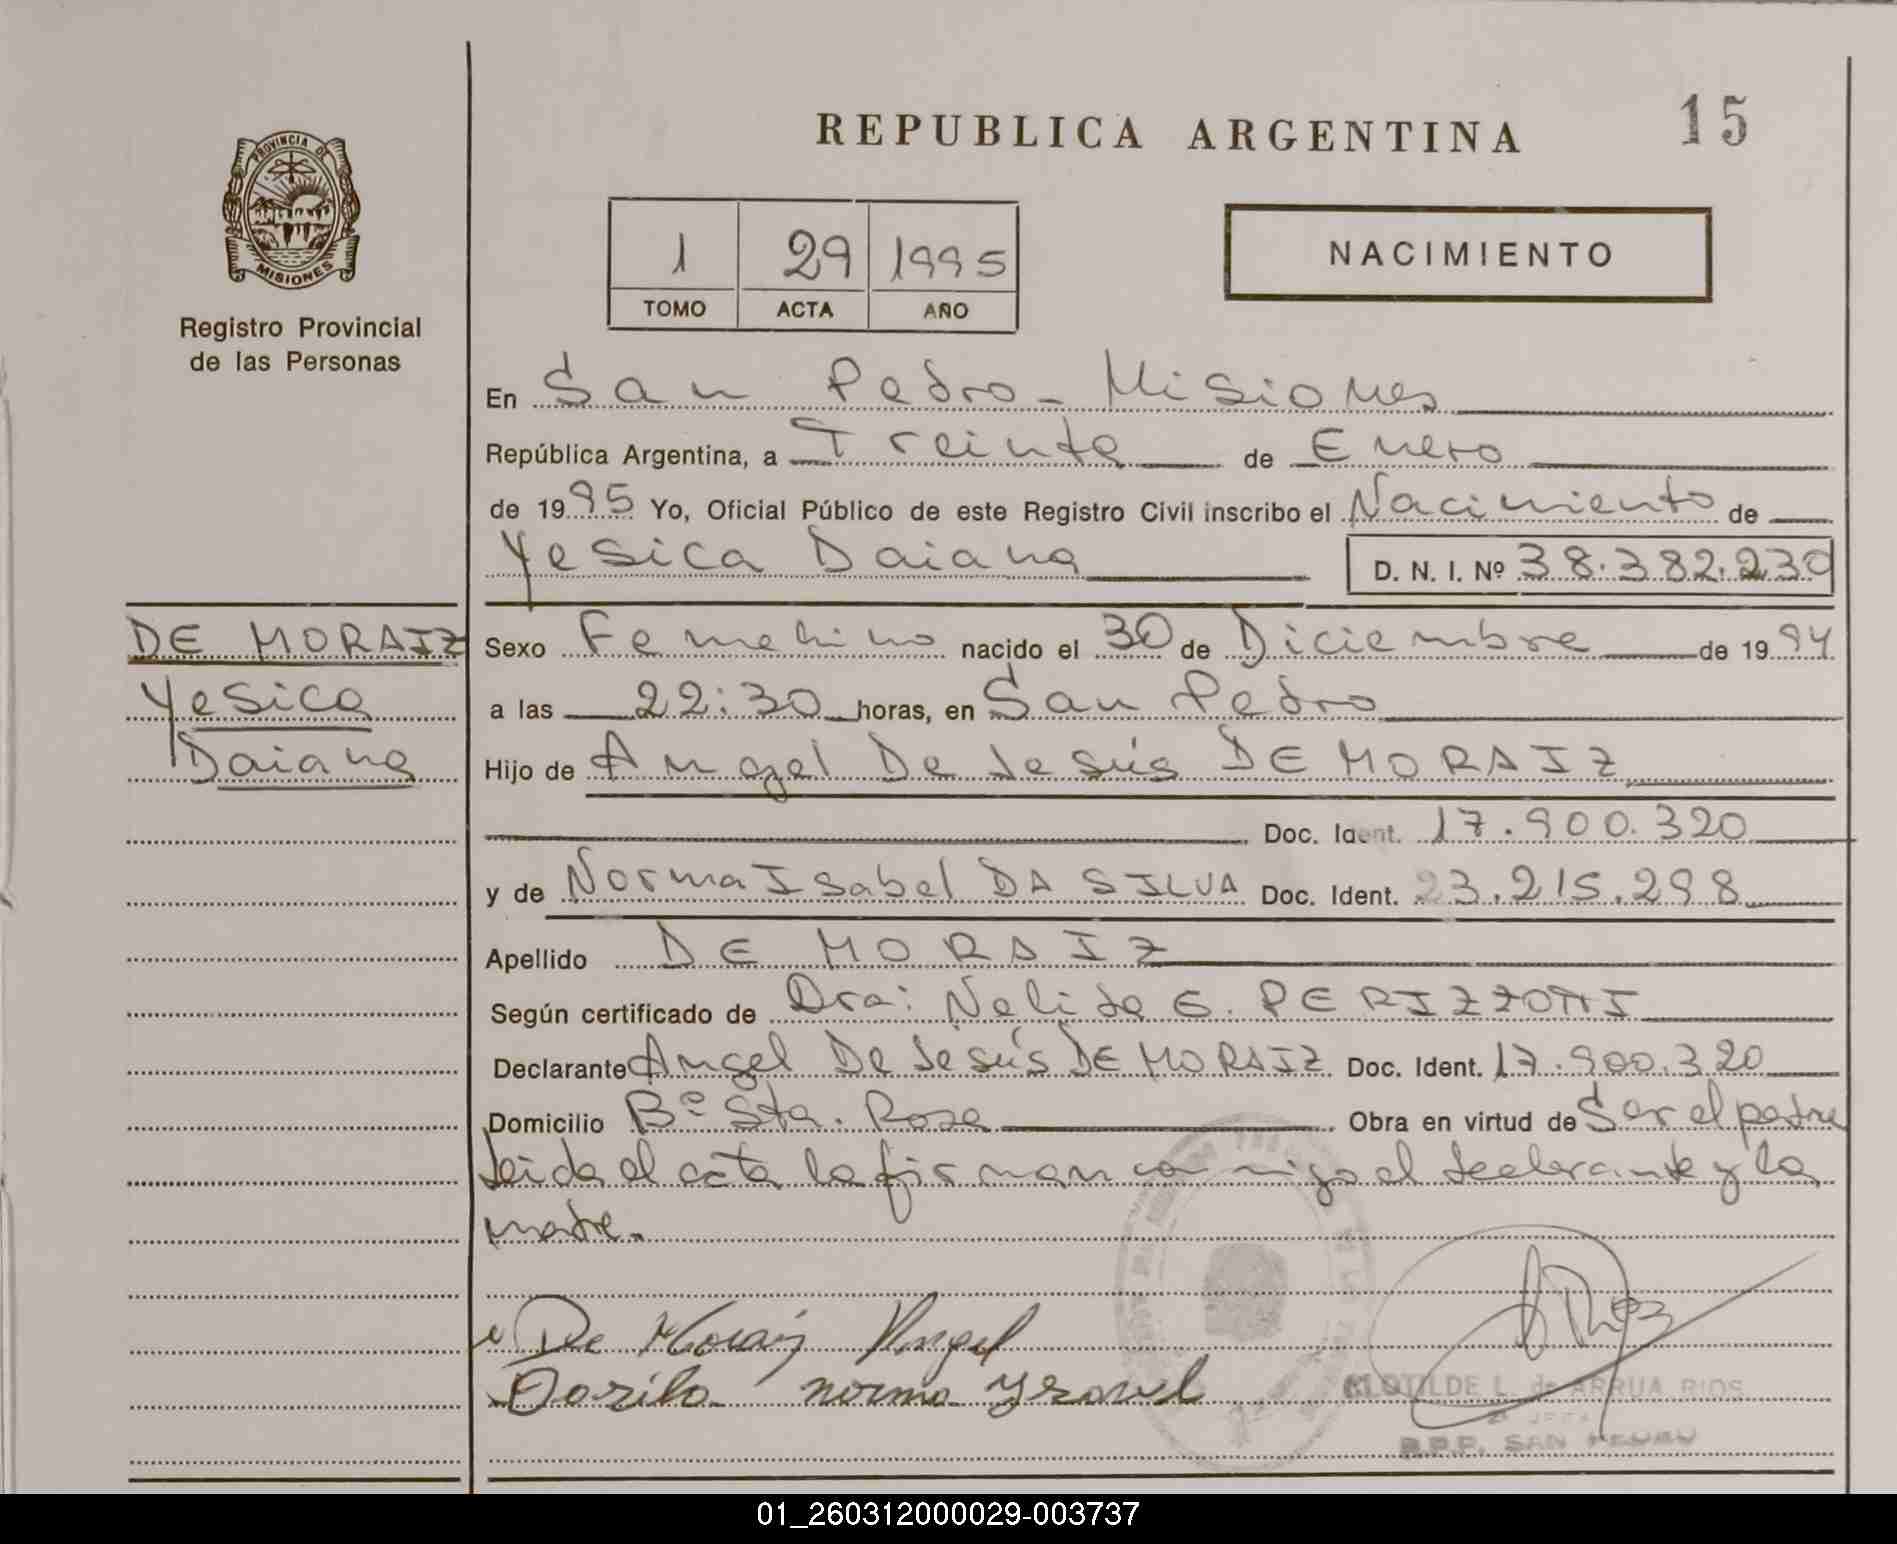 15
REPUBLICA ARGENTINA
PROVINCIA DE
MISIONES
Registro Provincial
de las Personas
1 29 1995
TOMO ACTA AÑO
NACIMIENTO
En San Pedro - Misiones
República Argentina, a Treinta de Enero
de 1995 Yo, Oficial Público de este Registro Civil inscribo el Nacimiento de
Yesica Daiana D. N. I. Nº 38.382.230
DE MORAIZ
Yesica
Daiana
Sexo Femenino nacido el 30 de Diciembre de 1994
a las 22:30 horas, en San Pedro
Hijo de Angel De Jesús DE MORAIZ
Doc. Ident. 17.900.320
y de Norma Isabel DA SILVA Doc. Ident. 23.215.298
Apellido DE MORAIZ
Según certificado de Dra: Nelida E. PERIZZOTTI
Declarante Angel De Jesús DE MORAIZ Doc. Ident. 17.900.320
Domicilio Bº Sta. Rosa Obra en virtud de Ser el padre
Leida el acta la firman conmigo el declarante y la
madre.
De Moraiz Angel
Dasilva norma ysavel
CLOTILDE L. de ARRUA RIOS
JEFA
R.P.P. SAN PEDRO
01_260312000029-003737